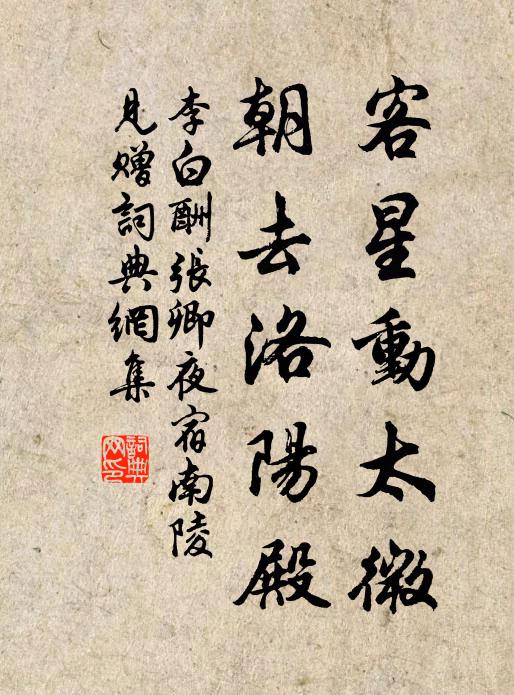 客星動太微
朝去洛陽殿
李白酬張卿夜宿南陵
見贈詞典網集
詞典网印